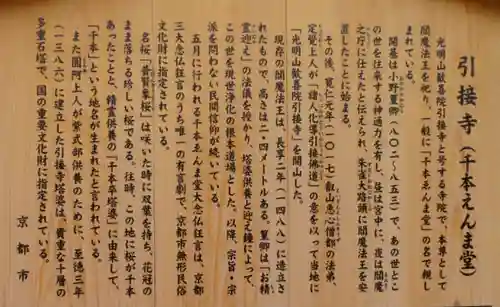 引接寺（千本えんま堂）
光明山歓喜院引接寺と号する寺院で、本尊として
閻魔法王を祀り、一般に「千本ゑんま堂」の名で親し
まれている。
開基は小野篁卿（八〇二～八五三）で、あの世とこ
の世を往来する神通力を有し、昼は宮中に、夜は閻魔
之庁に仕えたと伝えられ、朱雀大路頭に閻魔法王を安
置したことに始まる。
その後、寛仁元年（一〇一七）叡山恵心僧都の法弟、
定覚上人が「諸人化導引接仏道」の意を以って当地に
「光明山歓喜院引接寺」を開山した。
現存の閻魔法王は、長享二年（一四八八）に造立さ
れたもので、高さは二・四メートルある。篁卿は「お精
霊迎え」の法儀を授かり、塔婆供養と迎え鐘によって、
この世を現世浄化の根本道場とした。以降、宗旨・宗
派を問わない民間信仰が続いている。
五月に行われる千本ゑんま堂大念仏狂言は、京都
三大念仏狂言のうち唯一の有言劇で、京都市無形民俗
文化財に指定されている。
名桜「普賢象桜」は咲いた時に双葉を持ち、花冠の
まま落ちる珍しい桜である。往時、この地に桜が千本
あったことと、精霊供養の「千本卒塔婆」に由来して、
「千本」という地名が生まれたと言われている。
また円阿上人が紫式部供養のために、至徳三年
（一三八六）に建立した引接寺塔婆は、貴重な十層の
多重石塔で、国の重要文化財に指定されている。
京都市